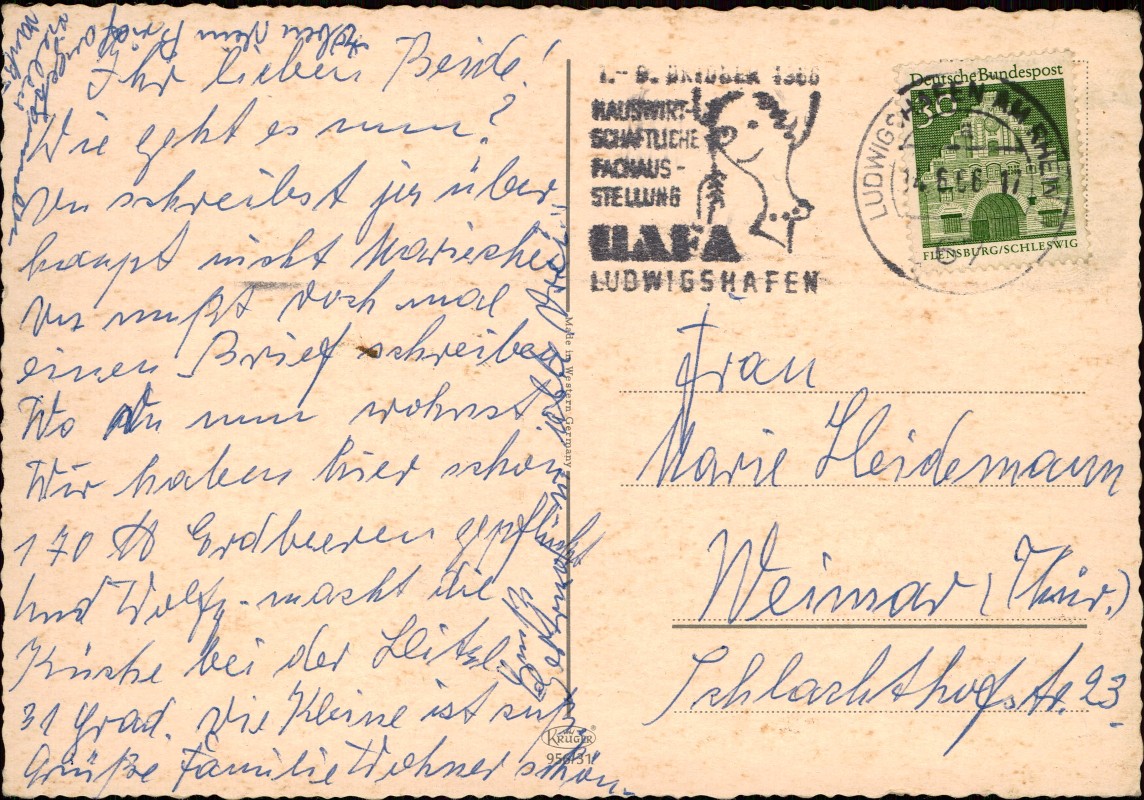 Ihr lieben Beide!
Wie geht es nun?
Du schreibst ja über-
haupt nicht Mariechen
Du mußt doch mal
einen Brief schreiben
Wo Du nun wohnst.
Wir haben hier schon
170 ℔ Erdbeeren gepflückt
und Wolfg. macht die
Küche bei der Hitze
31 Grad. Die Kleine ist süß
Grüße Familie Wohner schön
Über Dein Brief
vielen
Made in Western Germany
KRÜGER
956/31
1.-9. OKTOBER 1966
HAUSWIRT-
SCHAFTLICHE
FACHAUS-
STELLUNG
HAFA
LUDWIGSHAFEN
LUDWIGSHAFEN AM RHEIN
Deutsche Bundespost
30
FLENSBURG/SCHLESWIG
Frau
Marie Heidemann
Weimar (Thür.)
Schlachthofstr. 23